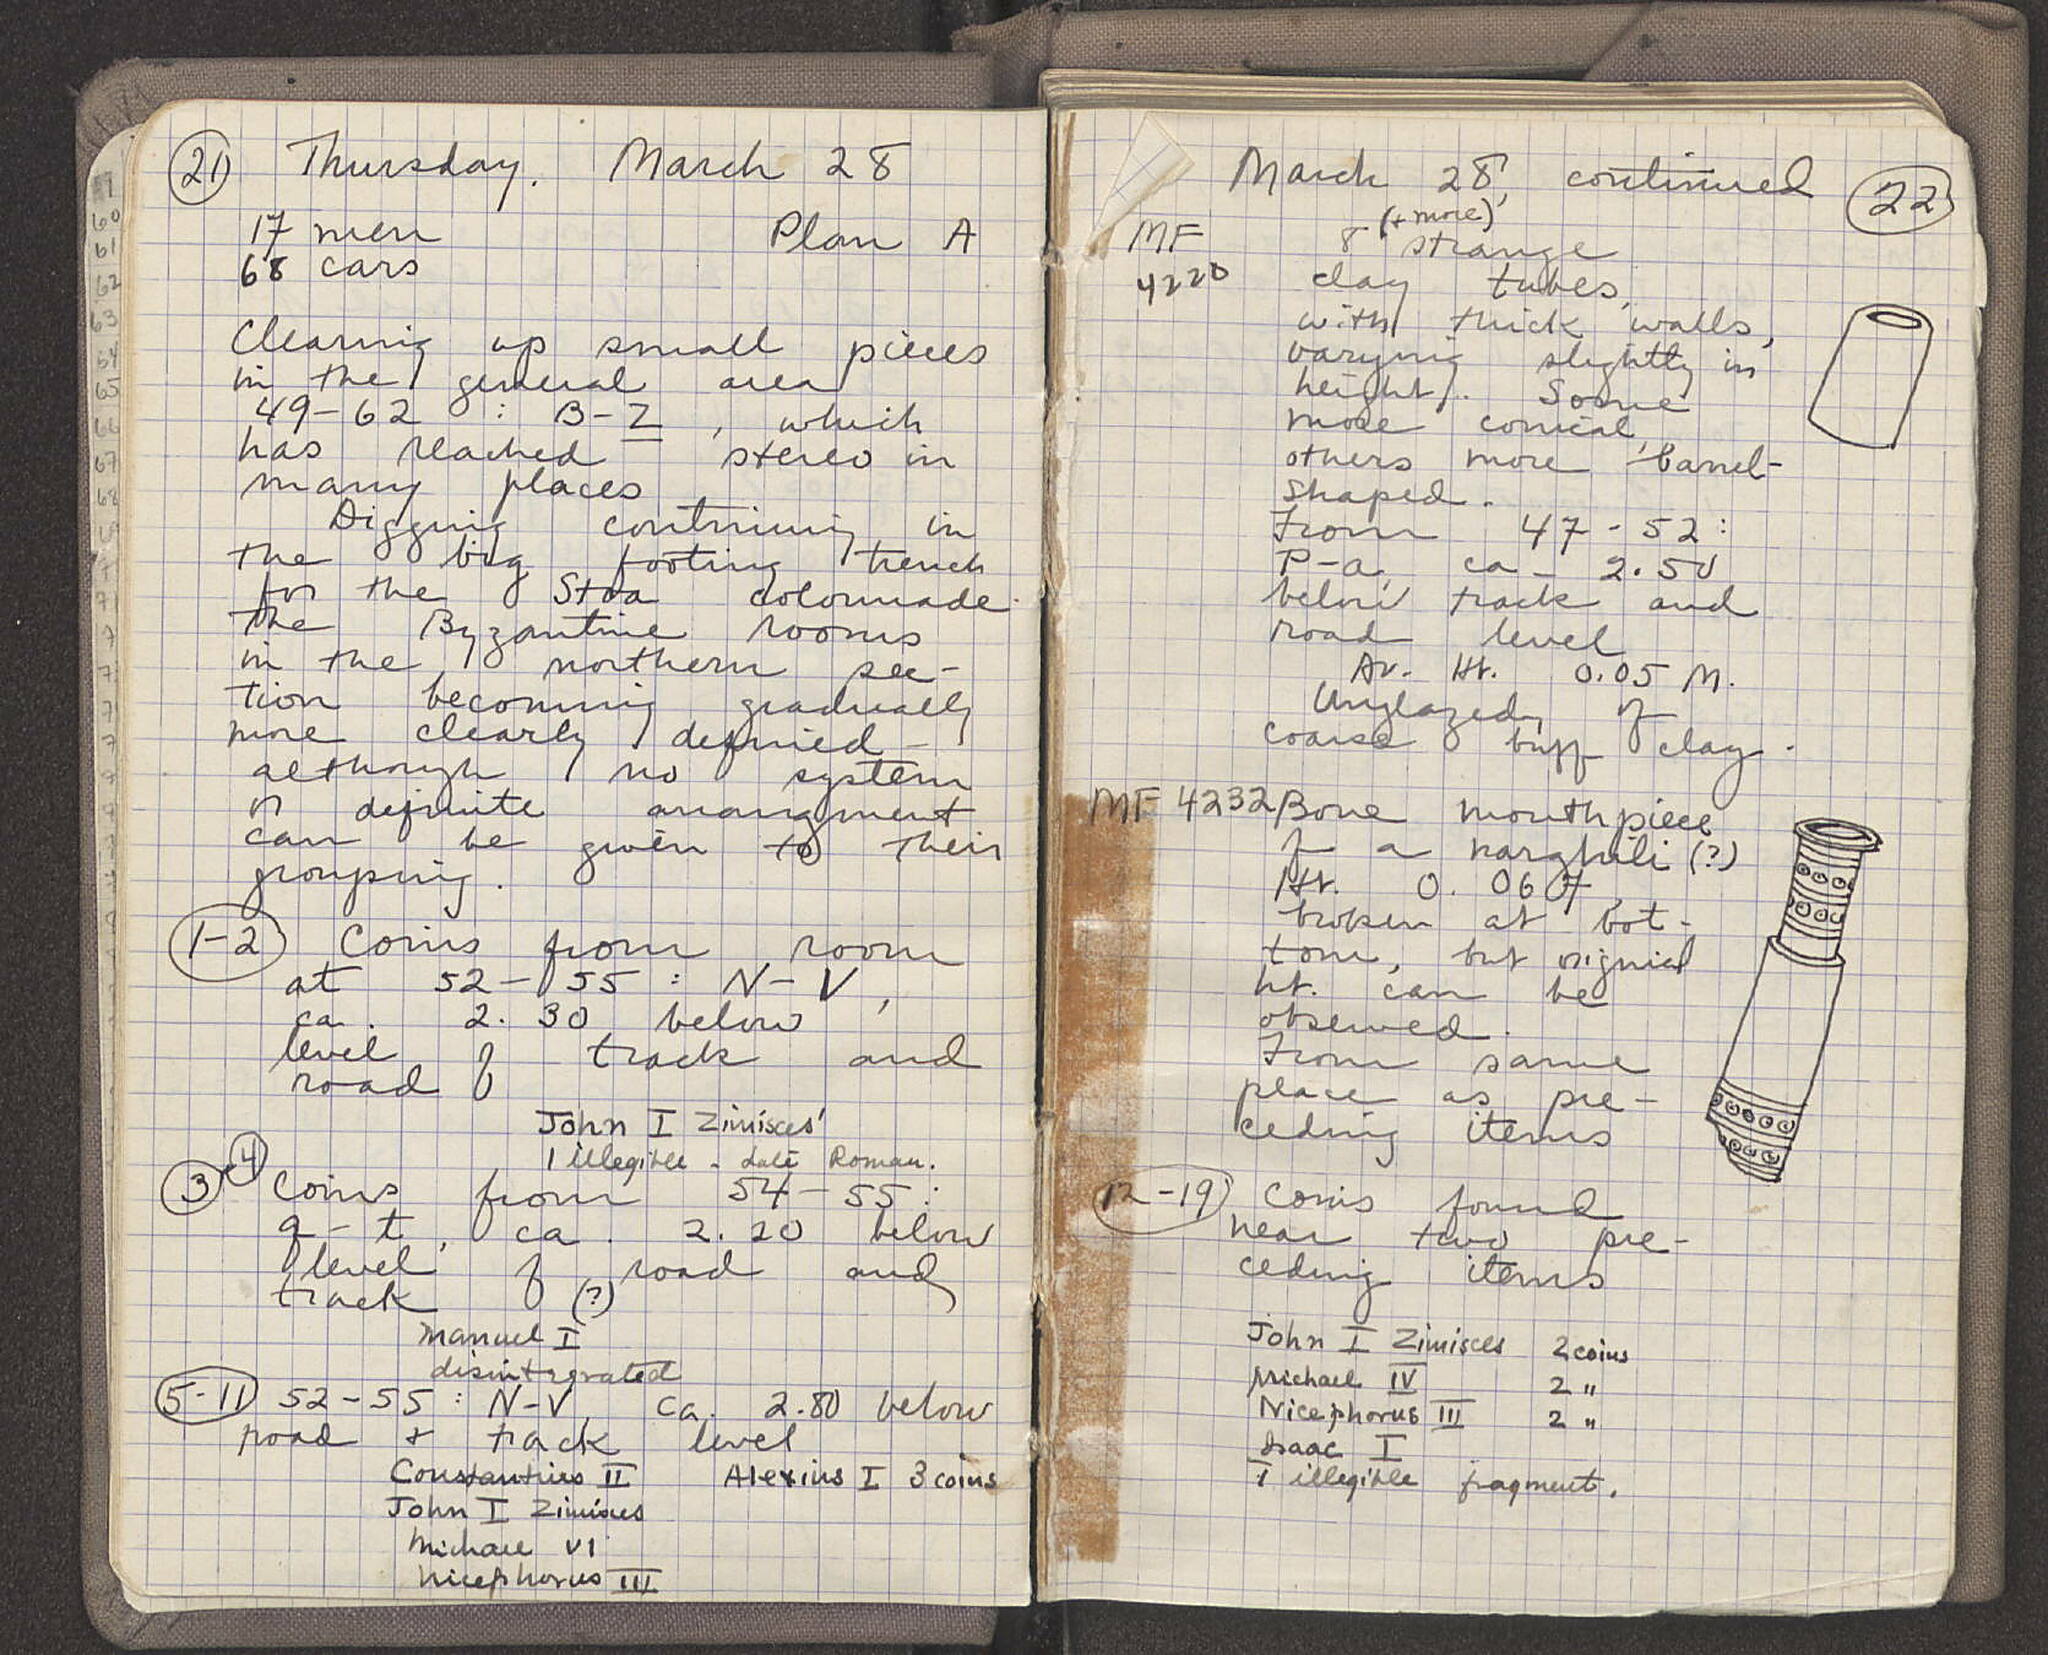 21 Thursday. March 28
17 men Plan A
68 cars
Clearing up small pieces
in the general area
49-62 : B-Z, which
has reached stereo in
many places
Digging continuing in
the big footing trench
for the Stoa colonnade.
The Byzantine rooms
in the northern sec-
tion becoming gradually
more clearly defined -
although no system
or definite arrangment
can be given to their
grouping.
1-2 Coins from room
at 52-55 : N-V,
ca. 2.30 below
level of track and
road
John I Zimisces
1 illegible - late Roman.
3 4 Coins from 54-55 :
q-t, ca. 2.20 below
level of road and
track (?)
Manuel I
disintegrated
5-11 52-55 : N-V, ca. 2.80 below
road & track level
Constantius II Alexius I 3 coins
John I Zimisces
Michael VI
Nicephorus III
March 28, continued 22
MF 8 (+ more) strange
4220 clay tubes,
with thick walls,
varying slightly in
height. Some
more conical,
others more barrel-
shaped.
From 47-52 :
P-a, ca. 2.50
below track and
road level
Av. Ht. 0.05 M.
Unglazed, of
coarse buff clay.
MF 4232 Bone mouthpiece
of a narghili (?)
Ht. 0.067
broken at bot-
tom, but original
ht. can be
observed.
From same
place as pre-
ceding items
12-19 Coins found
near two pre-
ceding items
John I Zimisces 2 coins
Michael IV 2 "
Nicephorus III 2 "
Isaac I
1 illegible fragment.